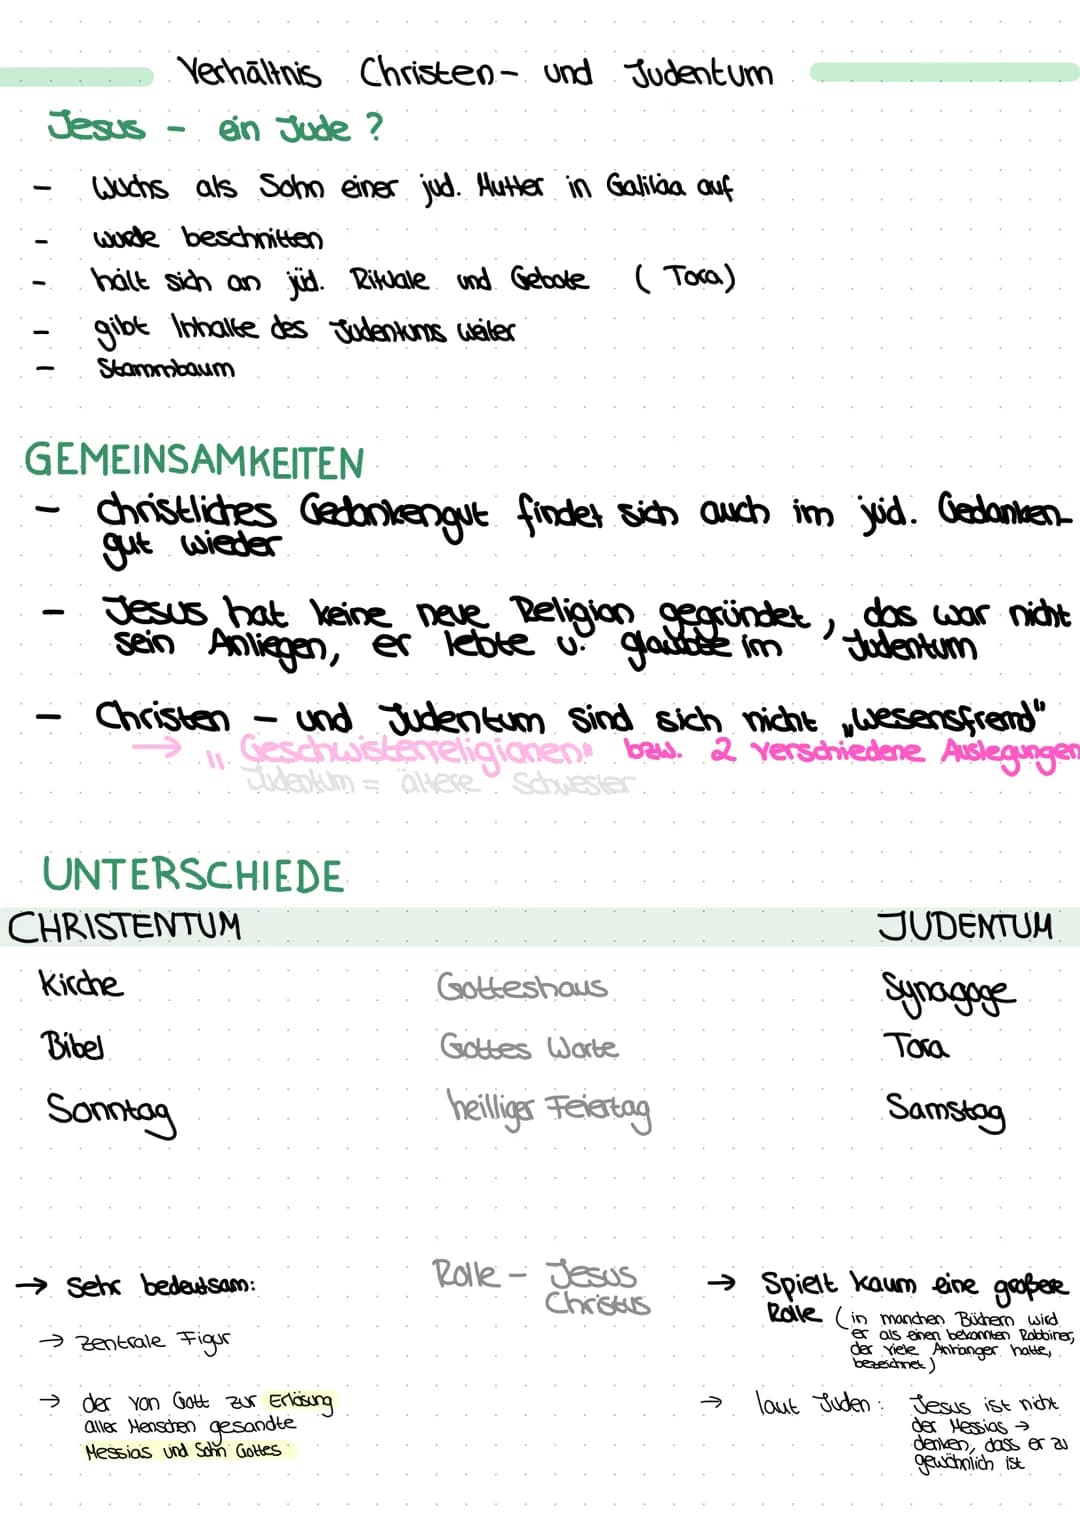 Verhältnis Christen- und Judentum
Jesus - ein Jude ?
- wuchs als Sohn einer jud. Mutter in Galiläa auf
- wurde beschnitten
- hält sich an jüd. Rituale und Gebote ( Tora)
- gibt Inhalte des Judentums weiter
- Stammbaum
GEMEINSAMKEITEN
- christliches Gedankengut findet sich auch im jüd. Gedanken-
gut wieder
- Jesus hat keine neue Religion gegründet, das war nicht
sein Anliegen, er lebte u. glaubte im Judentum
- Christen - und Judentum sind sich nicht „wesensfremd"
→ "Geschwisterreligionen" bzw. 2 verschiedene Auslegungen
Judentum = ältere Schwester
UNTERSCHIEDE
CHRISTENTUM JUDENTUM
Kirche Gotteshaus Synagoge
Bibel Gottes Worte Tora
Sonntag heilliger Feiertag Samstag
→ Sehr bedeutsam: Rolle - Jesus Christus → Spielt kaum eine großere
Rolle (in manchen Büchern wird
er als einen bekannten Rabbiner,
der viele Anhänger hatte,
bezeichnet)
→ zentrale Figur
→ der von Gott zur Erlösung
aller Menschen gesandte
Messias und Sohn Gottes
→ laut Juden: Jesus ist nicht
der Messias →
denken, dass er zu
gewöhnlich ist